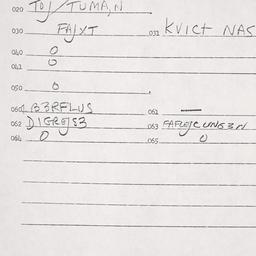 020 TOJ/TUMA,N
030 FAJXT 031 KVICT NAS
040 0
041 0
050 0
060 B3RFLUS 061 —
062 DIGROJS3 063 FAFLOJCUNG3N
064 0 065 0